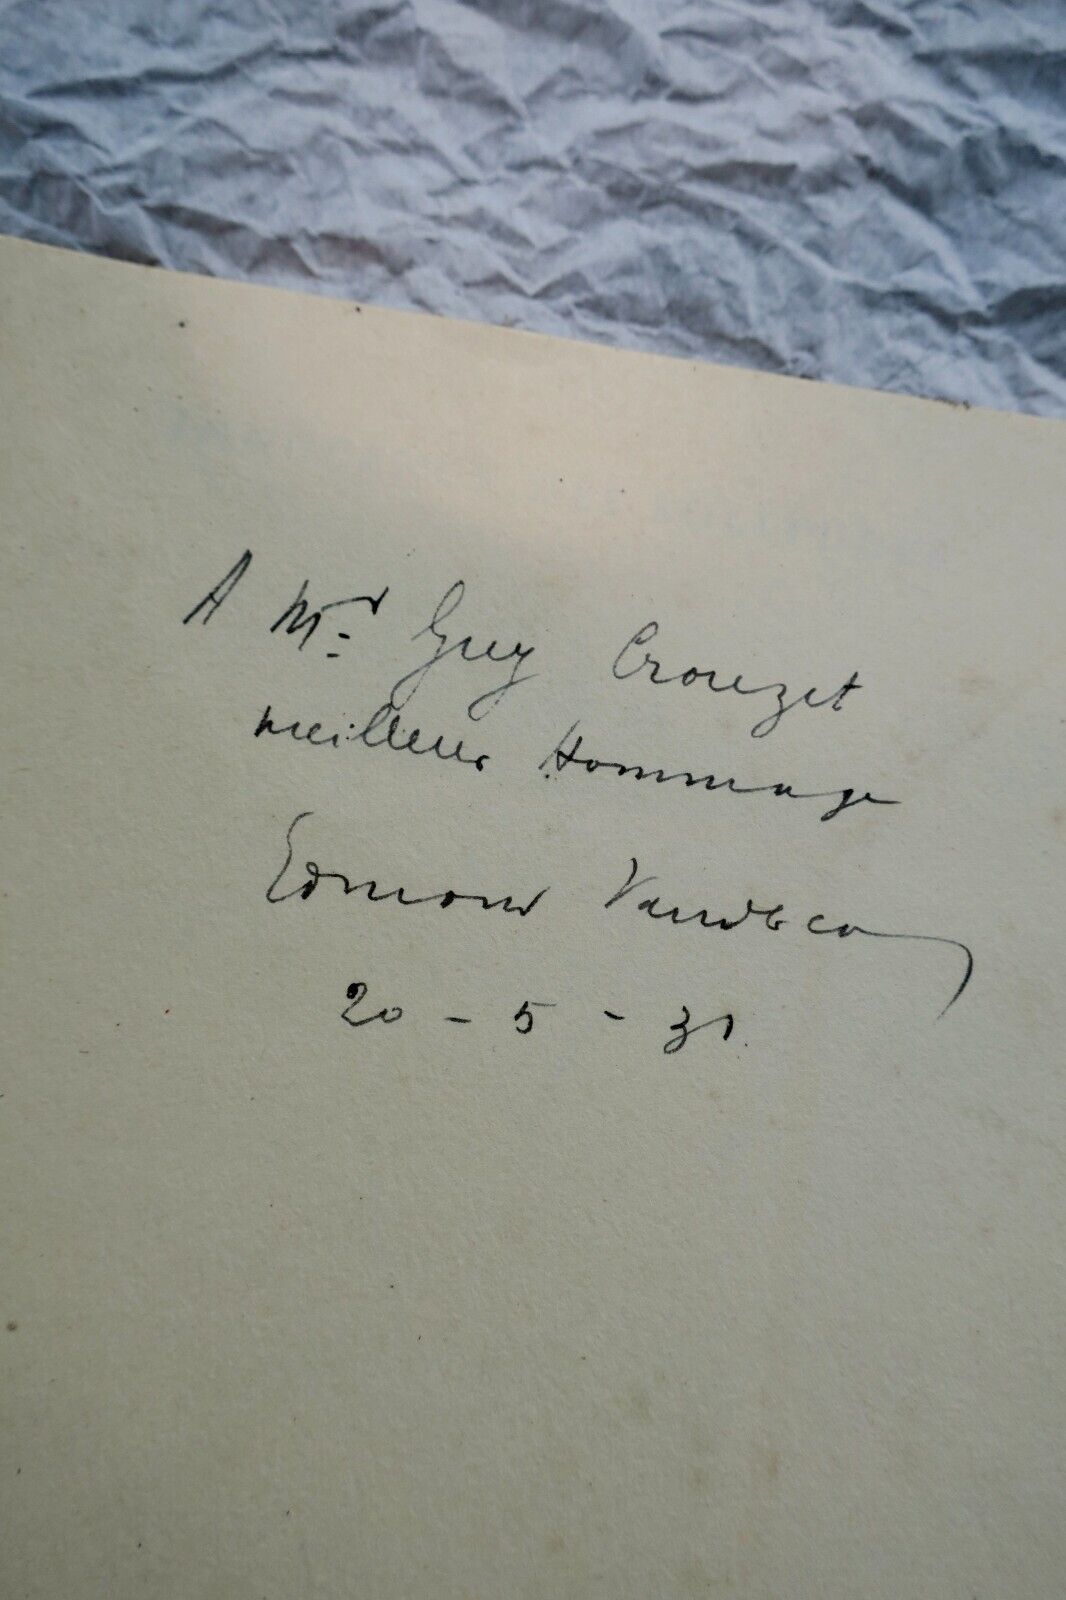 A Mr Guy Crouzet
meilleur Hommage
Edmond Vandercam
20 - 5 - 31